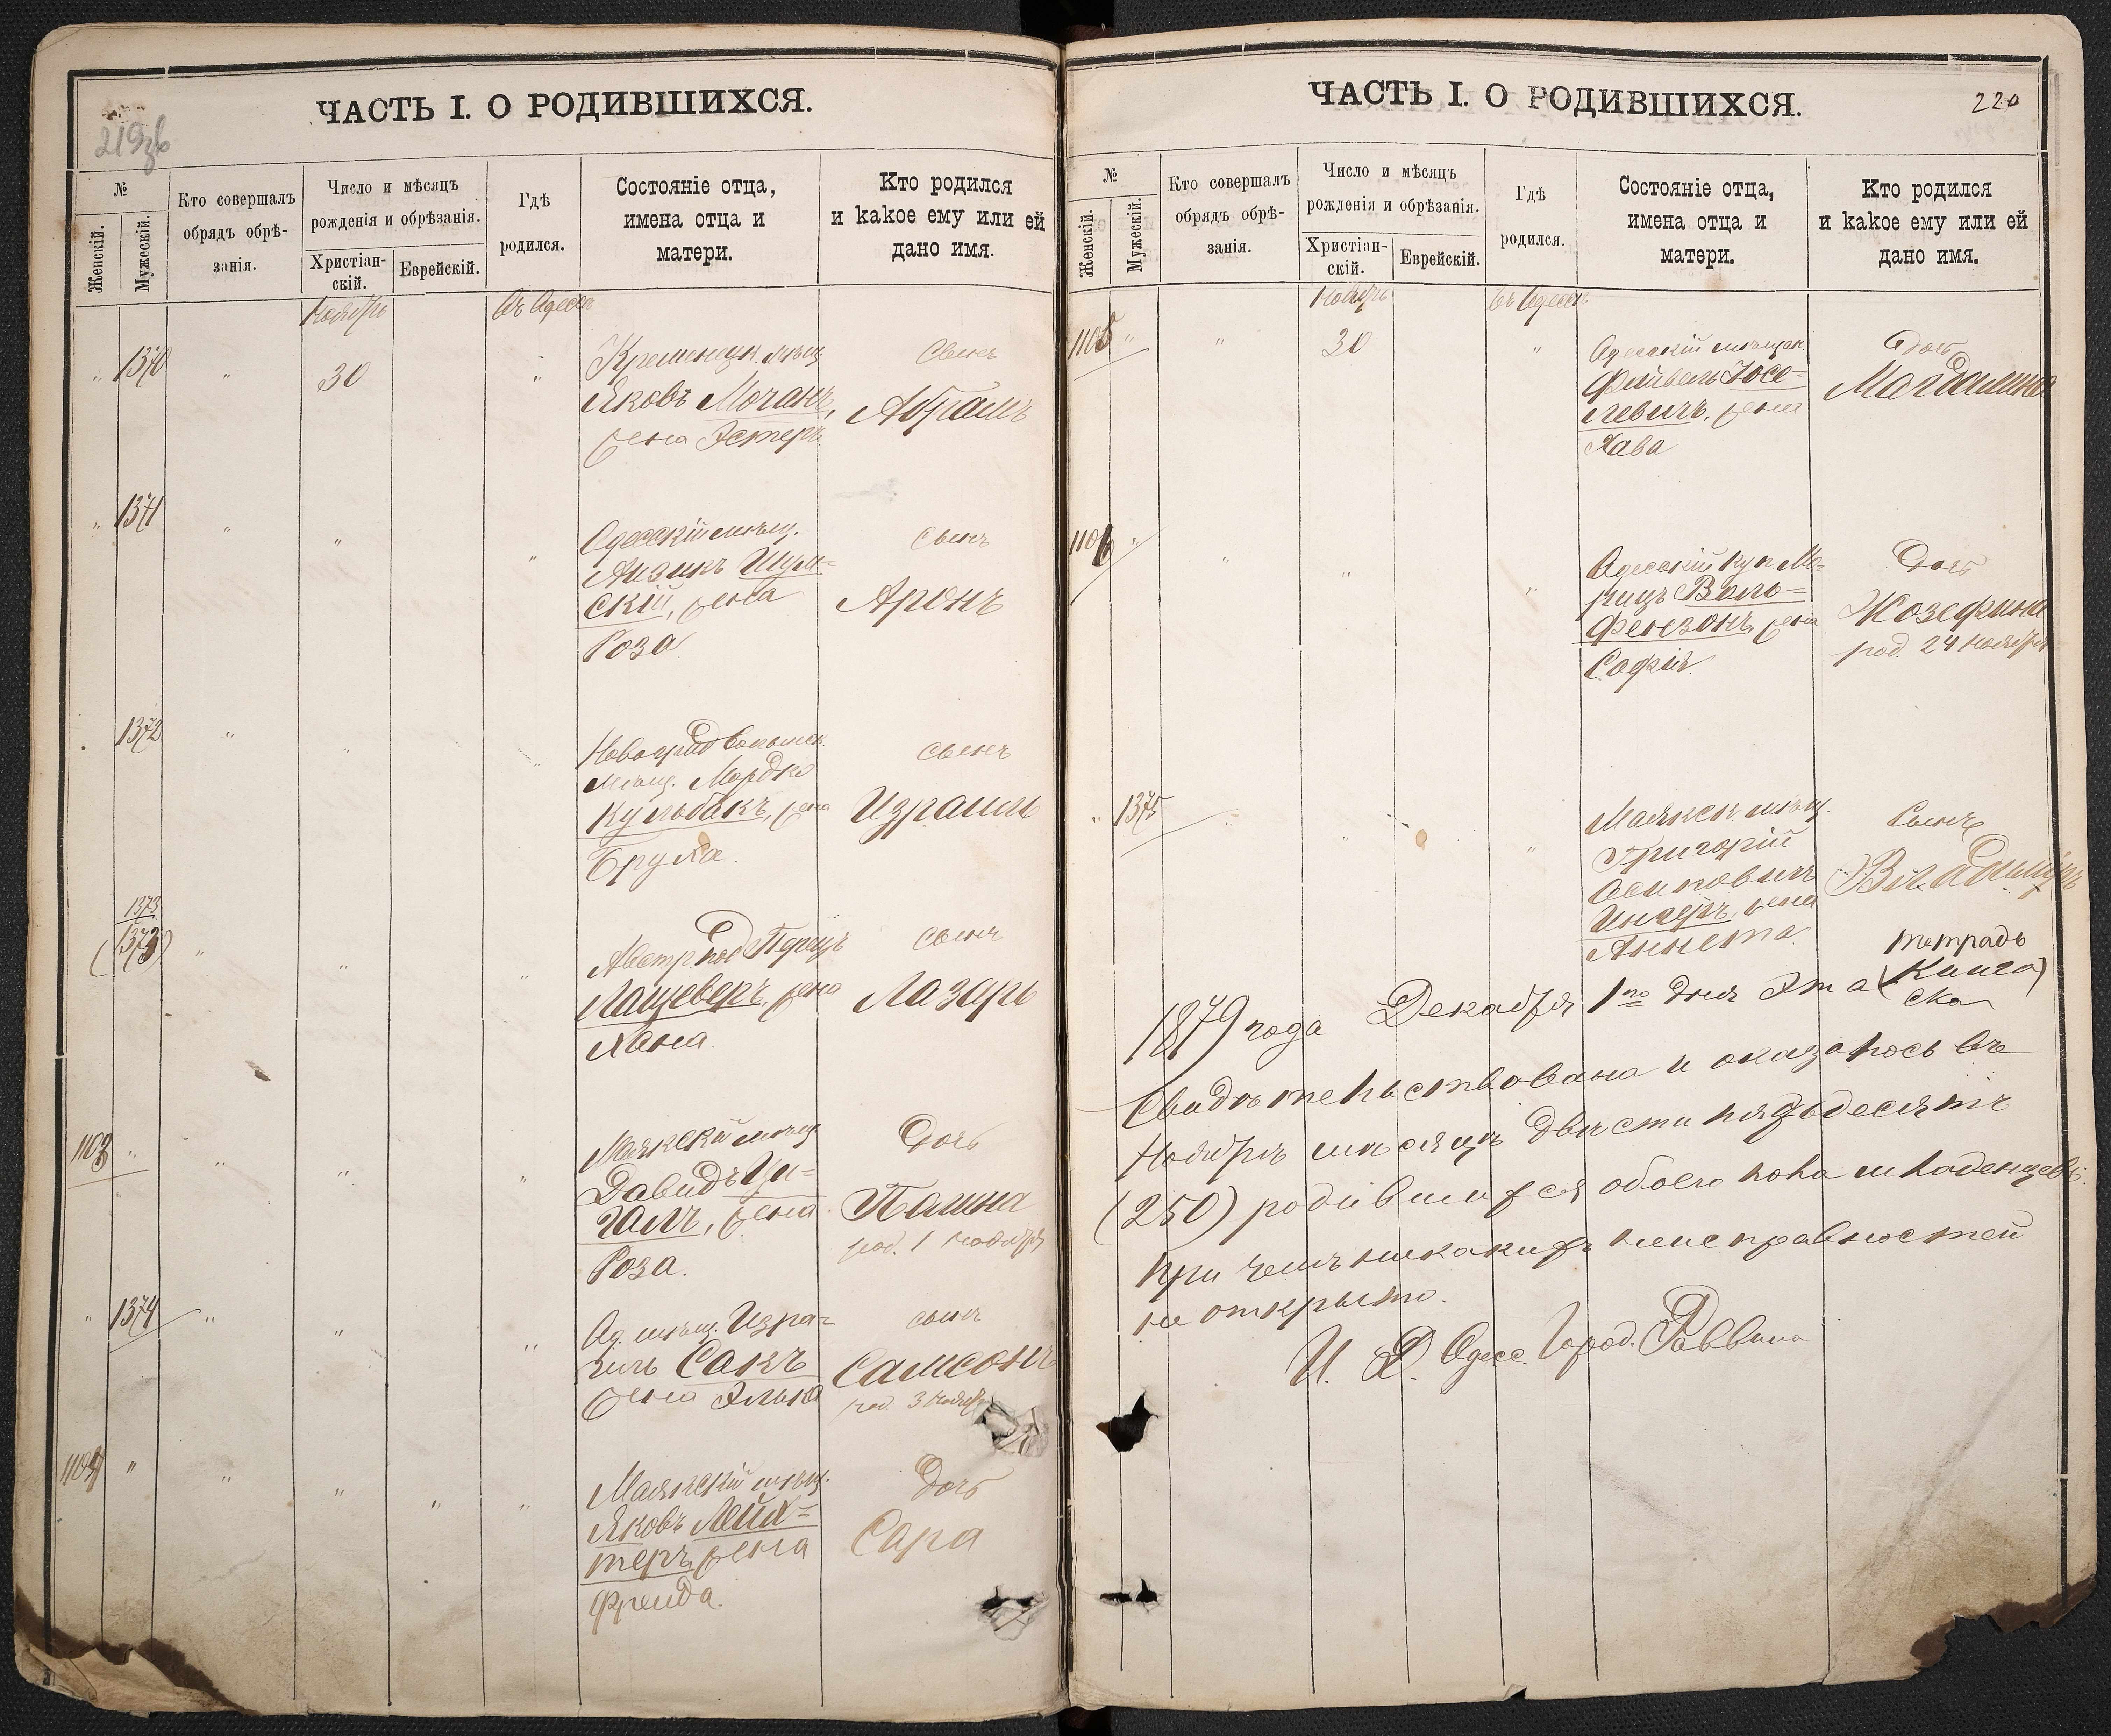 ЧАСТЬ I. О РОДИВШИХСЯ.
219зб
№
Женскій.
Мужескій.
Кто совершалъ
обрядъ обрѣ-
занія.
Число и мѣсяцъ
рожденія и обрѣзанія.
Христіан-
скій.
Еврейскій.
Гдѣ
родился.
Состояніе отца,
имена отца и
матери.
Кто родился
и какое ему или ей
дано имя.
Ноябрь
въ Одессѣ
" 1370 " 30 "
Кременецк. мѣщ.
Яковъ Мочанъ,
жена Эстеръ
Сынъ
Абрамъ
" 1371 " " "
Одесскій мѣщ.
Айзикъ Шум-
скій, жена
Роза
сынъ
Аронъ
1372 " " "
Новоград Волынск.
мѣщ. Мордко
Кульбакъ, жена
Бруха.
сынъ
Израиль
1373
(1373) " " "
Австр. под Перецъ
Лащеверъ, жена
Хана
сынъ
Лазарь
1103 " " " "
Маякскій мѣщ
Давидъ Ци-
галъ, жена
Роза.
Дочь
Полина
род. 1 ноября
" 1374 " " "
Од. мѣщ. Изра-
иль Сакъ
жена Элька
сынъ
Самсонъ
род. 3 ноября
1104 " " " " "
Маякскій мѣщ.
Яковъ Лейх-
теръ, жена
Фрейда.
дочь
Сара
ЧАСТЬ I. О РОДИВШИХСЯ.
220
№
Женскій.
Мужескій.
Кто совершалъ
обрядъ обрѣ-
занія.
Число и мѣсяцъ
рожденія и обрѣзанія.
Христіан-
скій.
Еврейскій.
Гдѣ
родился.
Состояніе отца,
имена отца и
матери.
Кто родился
и какое ему или ей
дано имя.
Ноябрь
въ Одессѣ
1105 " " 30 "
Одесскій мѣщан.
Файвель Юсе-
левичъ, жена
Хава
Дочь
Магдалина
1106 " " " "
Одесскій куп. Мо-
рицъ Воль-
фензонъ, жена
Софія.
Дочь
Жозефина
род. 24 ноября
" 1375 " " "
Маякск. мѣщ.
Григорій
Осиповичъ
Ингеръ, жена
Аннета.
Сынъ
Владиміръ
тетрадь
1879 года Декабря 1го дня Эта (Книга)
ска
Свидѣтельствована и оказалось въ
Ноябрѣ мѣсяцѣ двѣсти пядьдесятъ
(250) родившихся обоего пола младенцевъ.
При чемъ никакихъ неисправностей
не открыто.
И. Д. Одесс. Город. Раввина